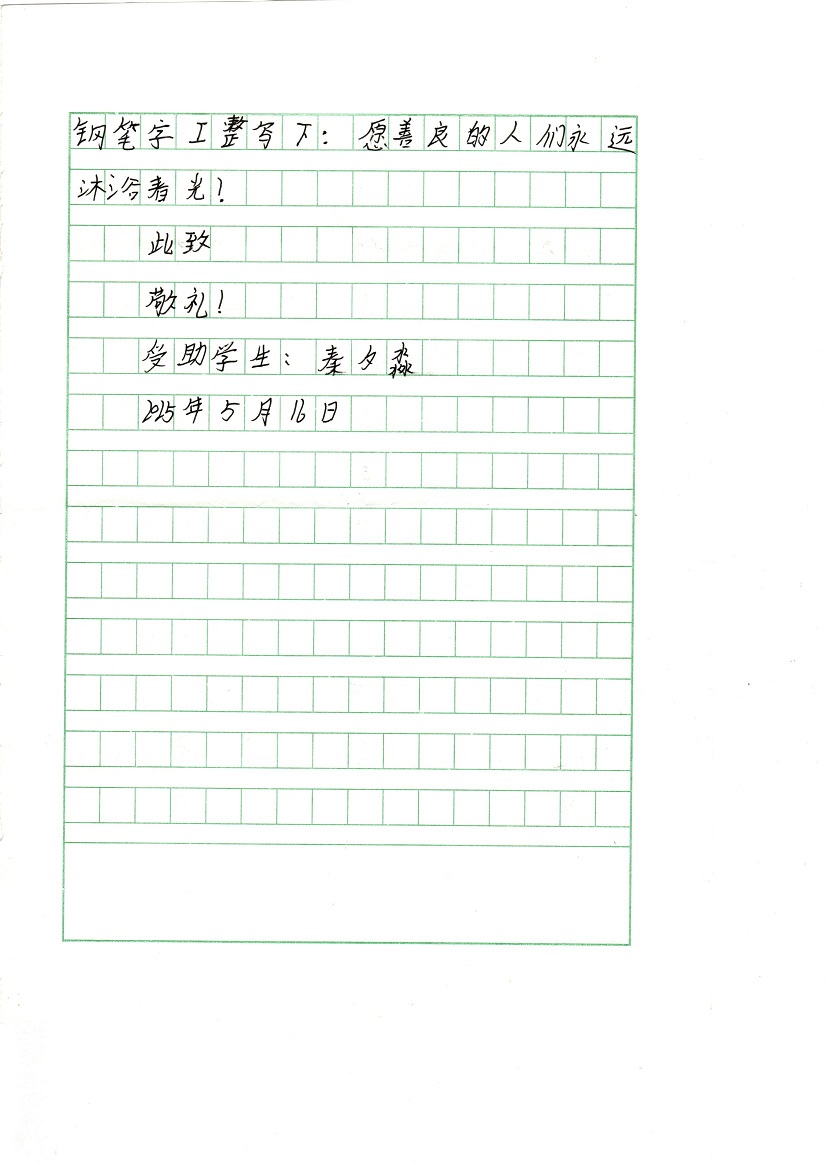 钢笔字工整写下：愿善良的人们永远
沐浴着光！
此致
敬礼！
受助学生：秦夕淼
2025年5月16日